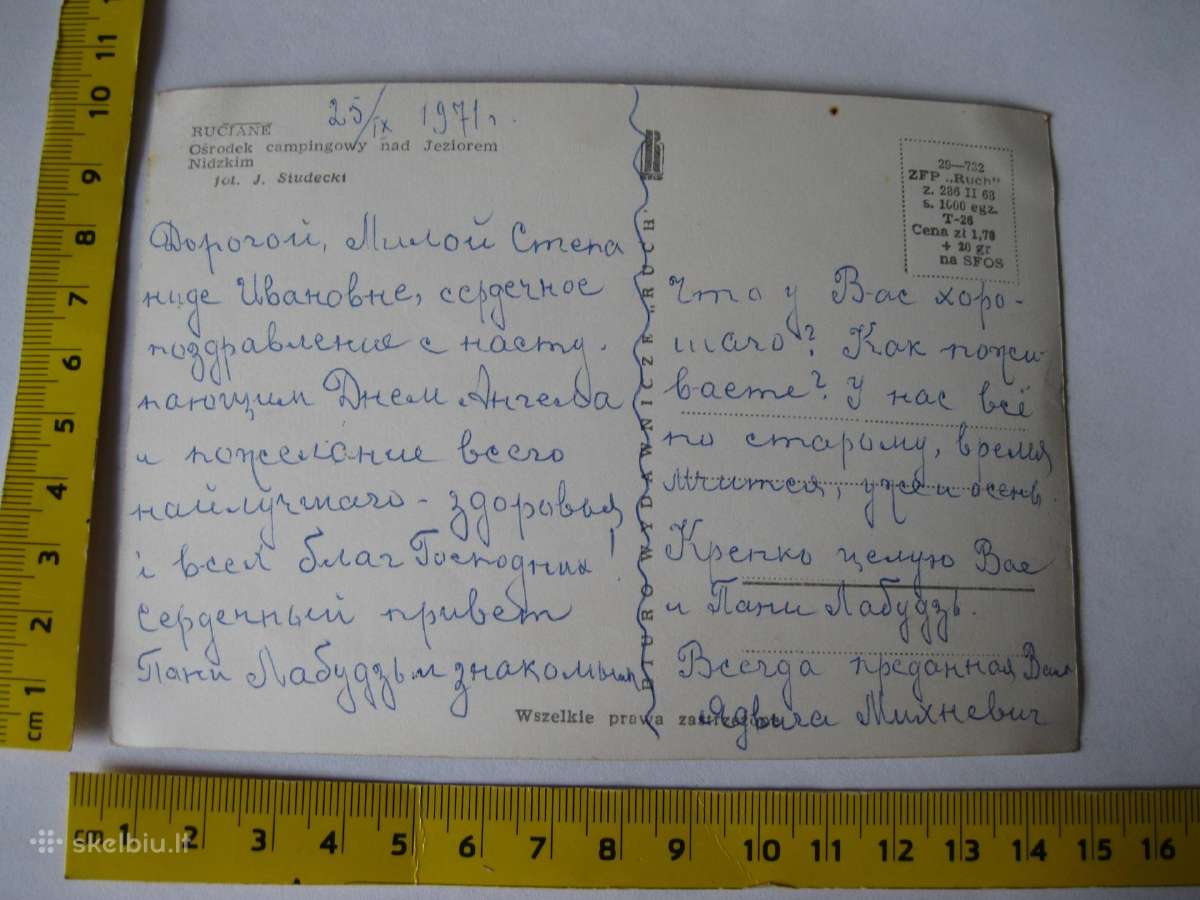 25/IX 1971 г.
RUCIANE
Ośrodek campingowy nad Jeziorem
Nidzkim
fot. J. Siudecki
Дорогой, Милой Степа
ниде Ивановне, сердечное
поздравление с насту-
пающим Днем Ангела
и пожелание всего
найлучшаго - здоровья
і всех благ Господних!
Сердечный привет
Пани Лабудзь и знакомым
BIURO WYDAWNICZE „RUCH"
29—732
ZFP „Ruch"
z. 286 II 68
s. 1000 egz.
T-26
Cena zł 1,70
+ 20 gr
na SFOS
Что у Вас хоро-
шаго? Как пожи-
ваете? У нас всё
по старому, время
мчится, уже и осень.
Крепко целую Вас
и Пани Лабудзь.
Всегда преданная Вам
Ядвига Михневич
Wszelkie prawa zastrzeżone
cm 1 2 3 4 5 6 7 8 9 10 11
cm 1 2 3 4 5 6 7 8 9 10 11 12 13 14 15 16
skelbiu.lt